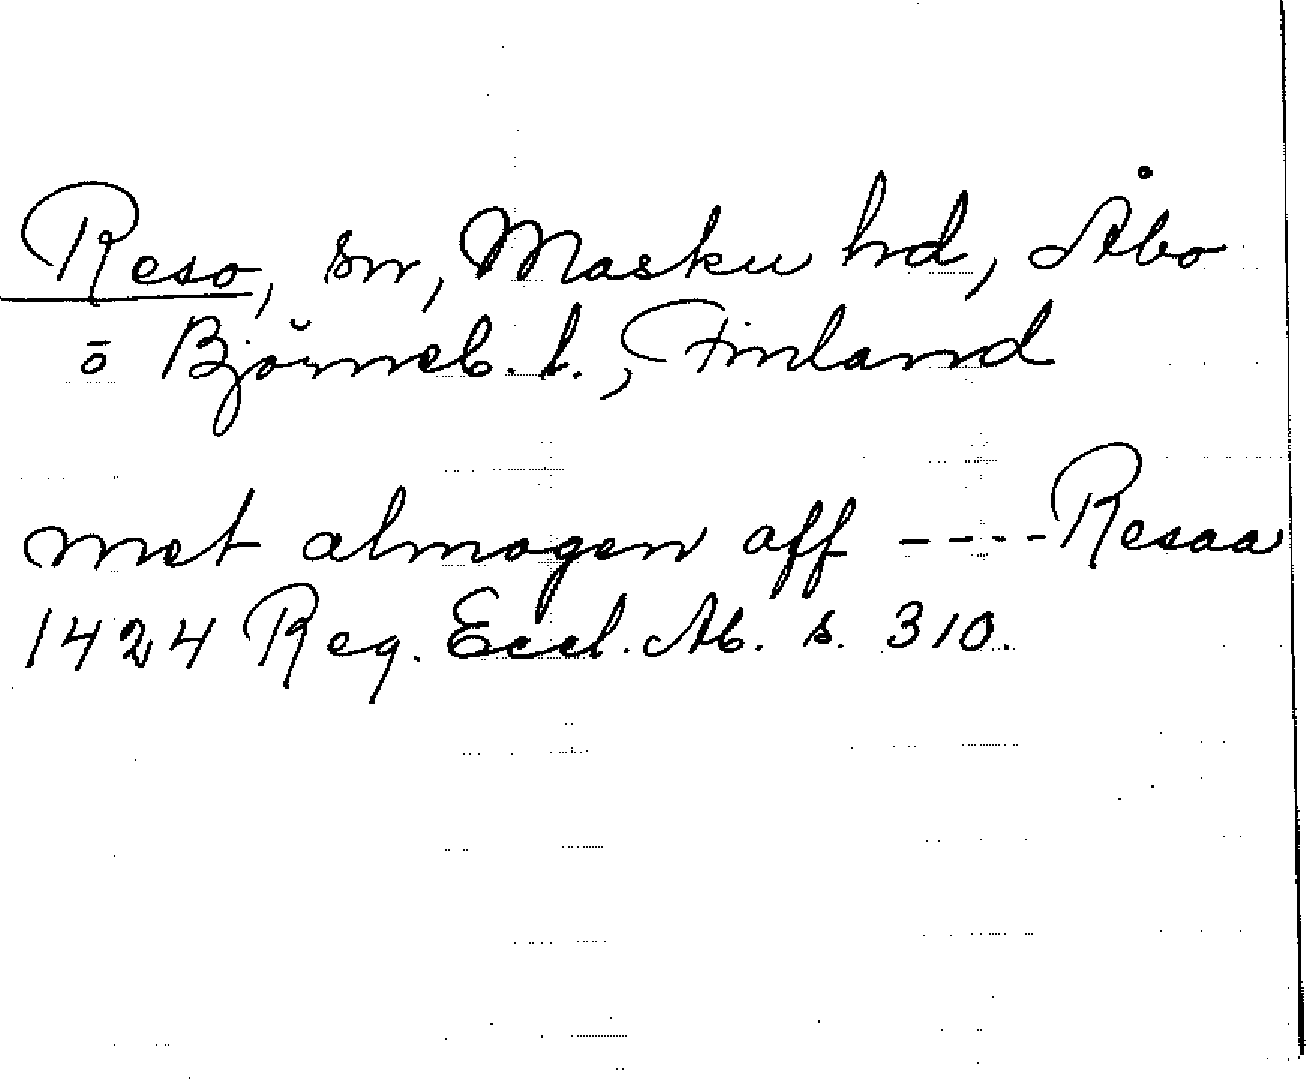 Reso, sn, Masku hd, Åbo
o Björneb. l., Finland
met almogen aff ---- Resaa
1424 Reg. Eccl. Ab. s. 310.